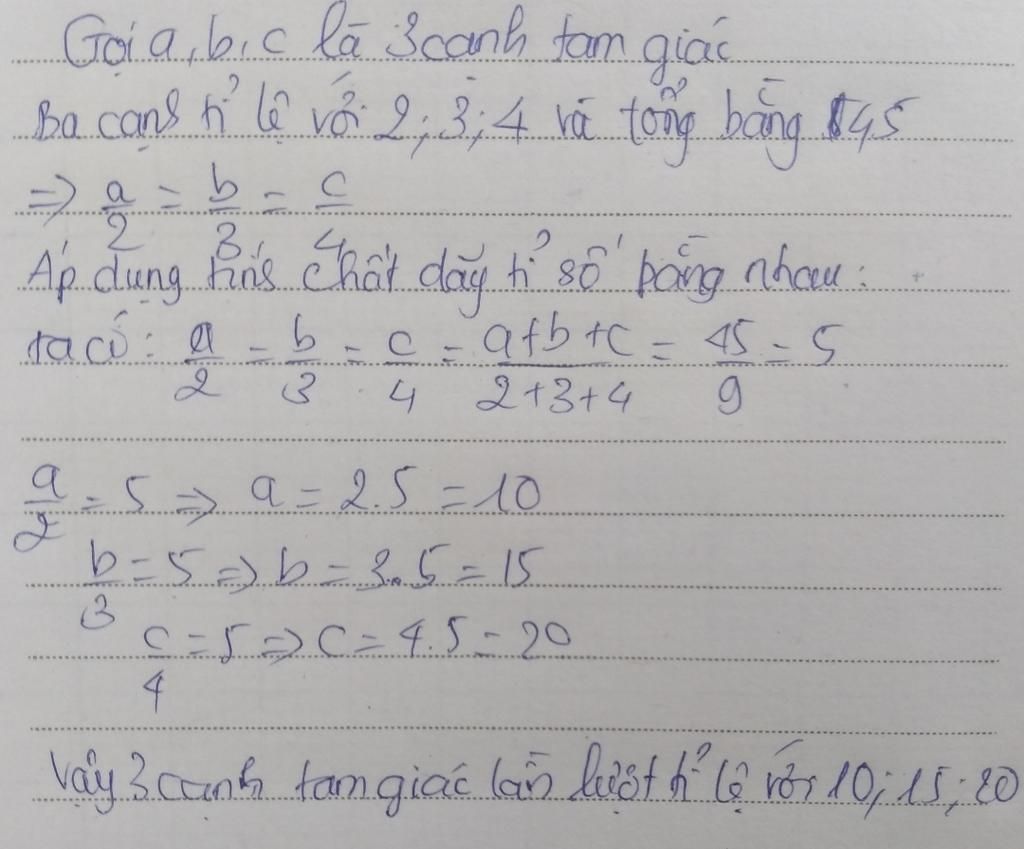 Gọi a, b, c là 3 cạnh tam giác
Ba cạnh tỉ lệ với 2; 3; 4 và tổng bằng 45
=> a/2 = b/3 = c/4
Áp dụng tính chất dãy tỉ số bằng nhau:
ta có: a/2 = b/3 = c/4 = (a+b+c)/(2+3+4) = 45/9 = 5
a/2 = 5 => a = 2.5 = 10
b/3 = 5 => b = 3.5 = 15
c/4 = 5 => c = 4.5 = 20
Vậy 3 cạnh tam giác lần lượt tỉ lệ với 10; 15; 20